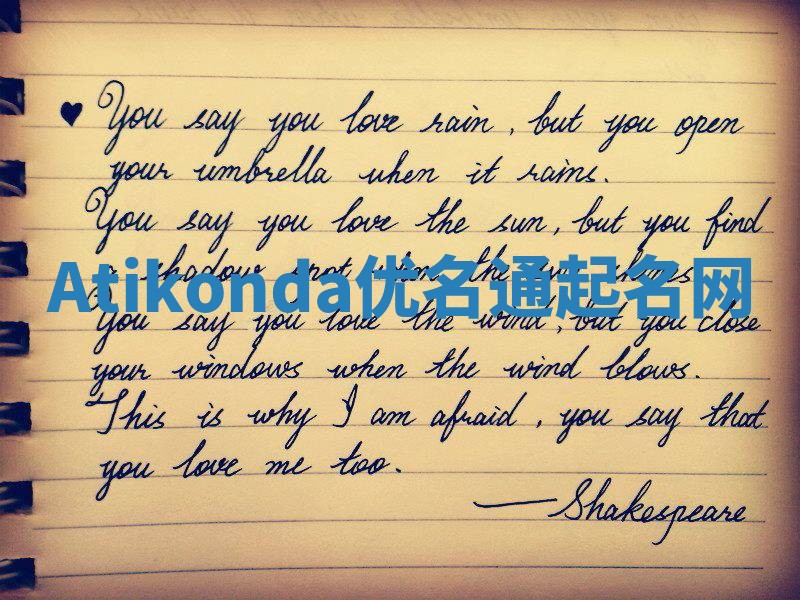 ♥ You say you love rain, but you open
your umbrella when it rains.
You say you love the sun, but you find
a shadow spot when the sun shines.
Atikonda优名通起名网
You say you love the wind, but you close
your windows when the wind blows.
This is why I am afraid, you say that
you love me too.
—Shakespeare